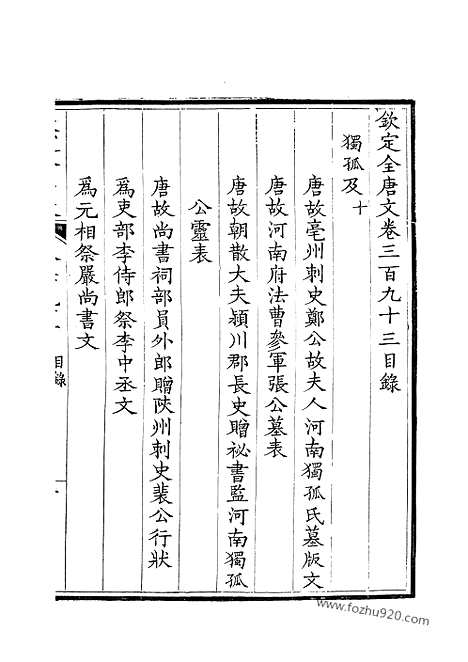 欽定全唐文卷三百九十三目錄
獨孤及十
唐故亳州刺史鄭公故夫人河南獨孤氏墓版文
唐故河南府法曹參軍張公墓表
唐故朝散大夫潁川郡長史贈祕書監河南獨孤
公靈表
唐故尚書祠部員外郎贈陝州刺史裴公行狀
為吏部李侍郎祭李中丞文
為元相祭嚴尚書文
目錄
www.fozhu920.com